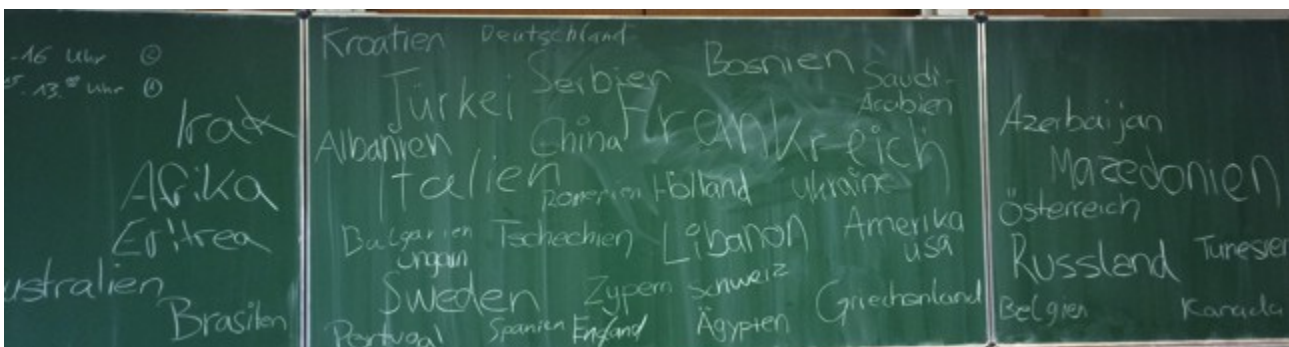 -16 Uhr
13.00 Uhr
Irak
Afrika
Eritrea
ustralien
Brasilien
Kroatien Deutschland
Türkei Serbien Bosnien Saudi-
Arabien
Albanien China Frankreich
Italien Romenien Holland Ukraine
Bulgarien Tschechien Libanon Amerika
Ungarn USA
Sweden Zypern Schweiz Griechenland
Portugal Spanien England Ägypten
Azerbaijan
Mazedonien
Österreich
Russland Tunesien
Belgien Kanada